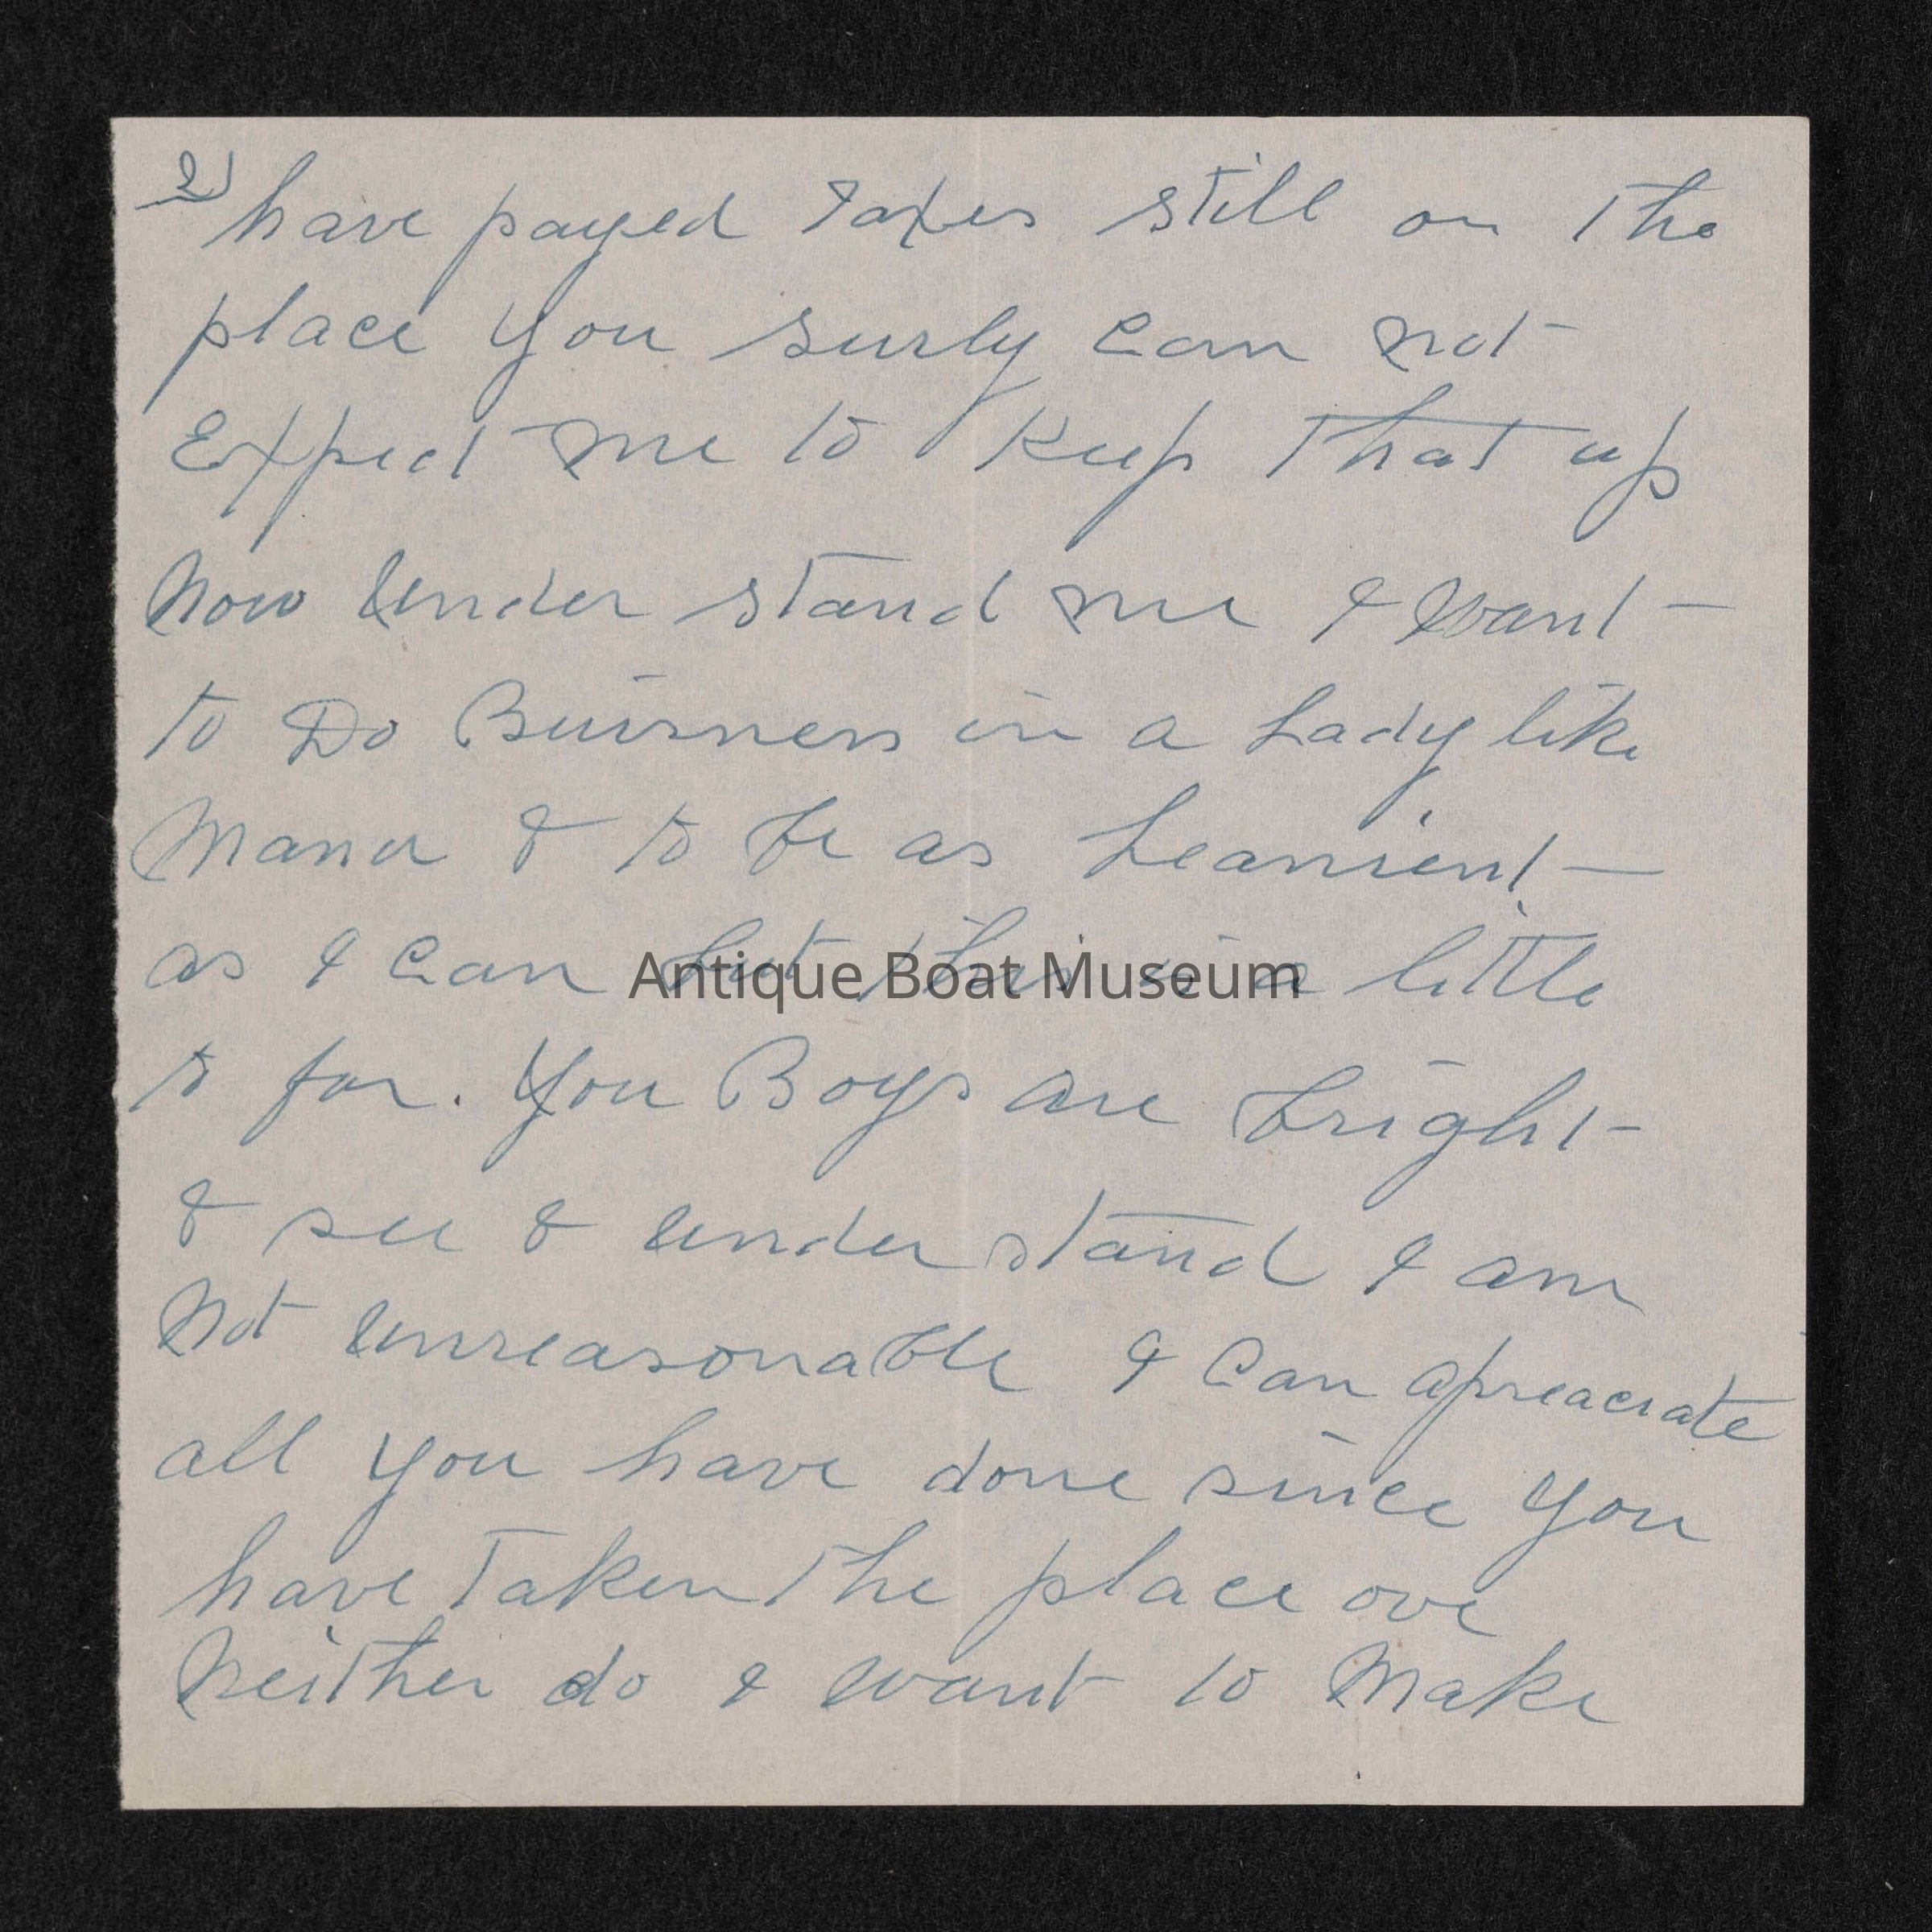 2)
have payed taxes still on the
place you surly can not
Expect me to keep that up
Now under stand me I want
to Do Buisness in a Lady like
Maner & to be as Leanient
as I can but this is a little
to far. You Boys are bright
& see & under stand I am
Not unreasonable I can apreaciate
all you have done since you
have taken the place ove
Neither do I want to Make
Antique Boat Museum